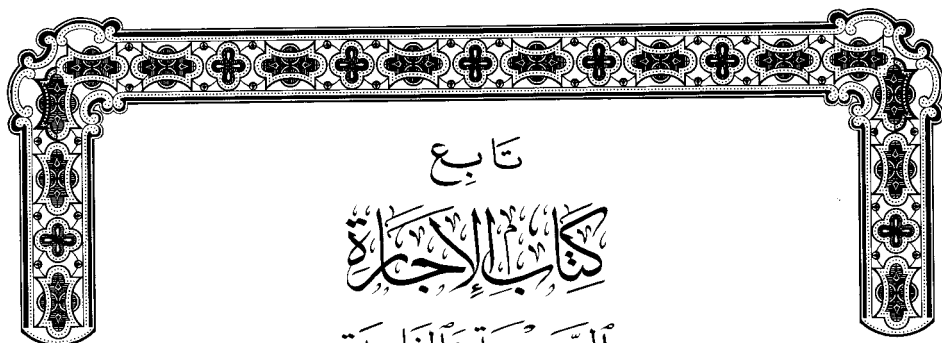 تَابِع
كِتَابُ الإِجَارَةِ